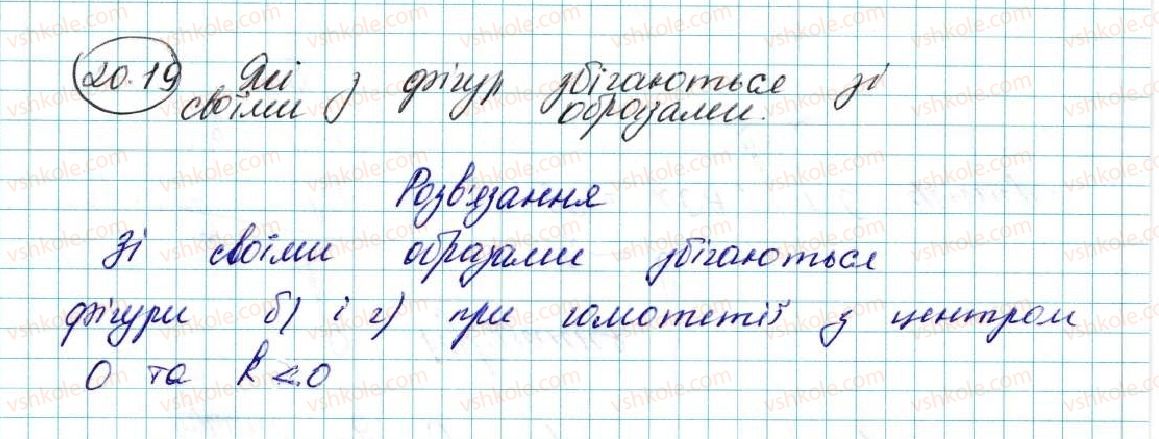 20.19 Які з фігур збігаються зі
своїми образами.
Розв'язання
Зі своїми образами збігаються
фігури б) і г) при гомотетії з центром
О та k < 0